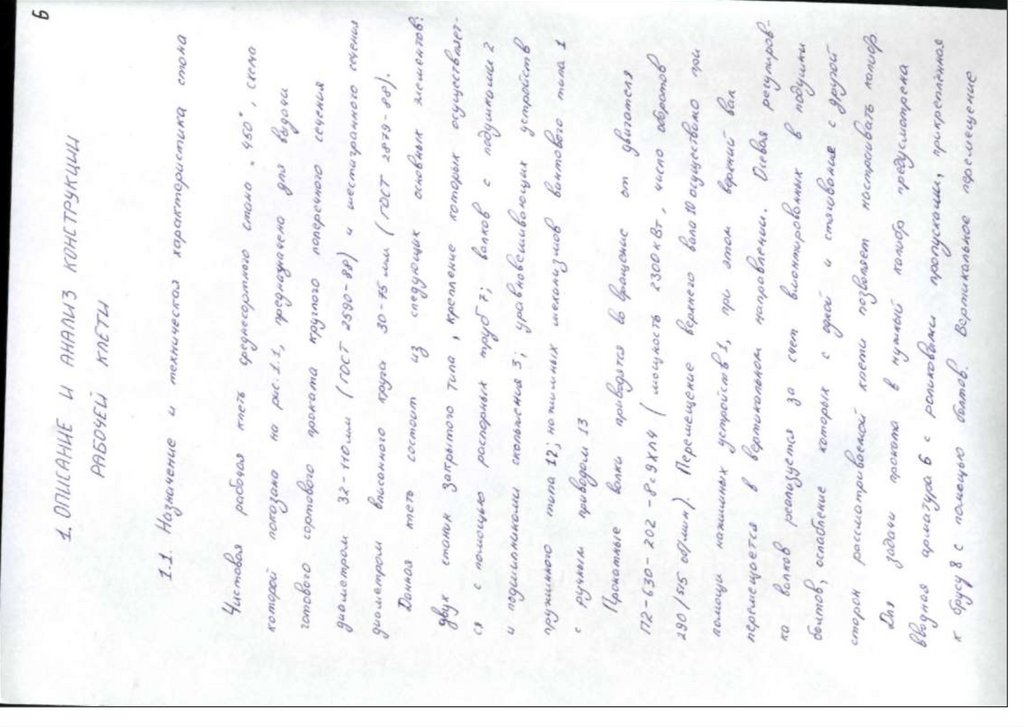 6
1. ОПИСАНИЕ И АНАЛИЗ КОНСТРУКЦИИ
РАБОЧЕЙ КЛЕТИ
1.1. Назначение и техническая характеристика стана
Чистовая рабочая клеть среднесортного стана "450", схема
которой показана на рис. 1.1, предназначена для выдачи
готового сортового проката круглого поперечного сечения
диаметром 32-110 мм (ГОСТ 2590-88) и шестигранного сечения
диаметром вписанного круга 30-75 мм (ГОСТ 2879-88).
Данная клеть состоит из следующих основных элементов:
двух станин закрытого типа, крепление которых осуществляет-
ся с помощью распорных труб 7; валков с подушками 2
и подшипниками скольжения 3; уравновешивающих устройств
пружинного типа 12; нажимных механизмов винтового типа 1
с ручным приводом 13
Прокатные валки приводятся во вращение от двигателя
П2-630-202-8с9ХЛ4 (мощность 2300 кВт, число оборотов
290/515 об/мин). Перемещение верхнего вала 10 осуществимо при
помощи нажимных устройств 1, при этом верхний вал
перемещается в вертикальном направлении. Осевая регулиров-
ка валков реализуется за счет вмонтированных в подушки
болтов, ослабление которых с одной и стягование с другой
сторон рассматриваемой клети позволяет настроивать калибр
Для задачи проката в нужный калибр предусмотрена
вводная арматура 6 с роликовыми пропусками, прикреплённая
к брусу 8 с помощью болтов. Вертикальное перемещение